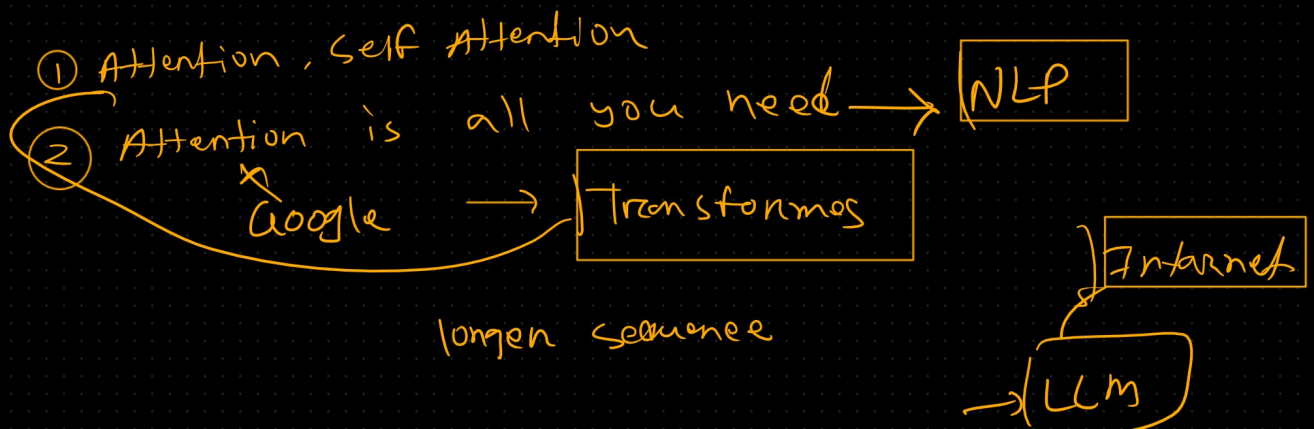 ① Attention, Self Attention
② Attention is all you need → NLP
Google → Transformes
Internet
longer sequence
→ LLM